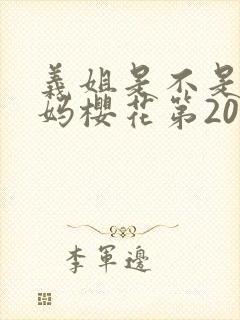 義姐是不是
妈櫻花第20
李軍邊